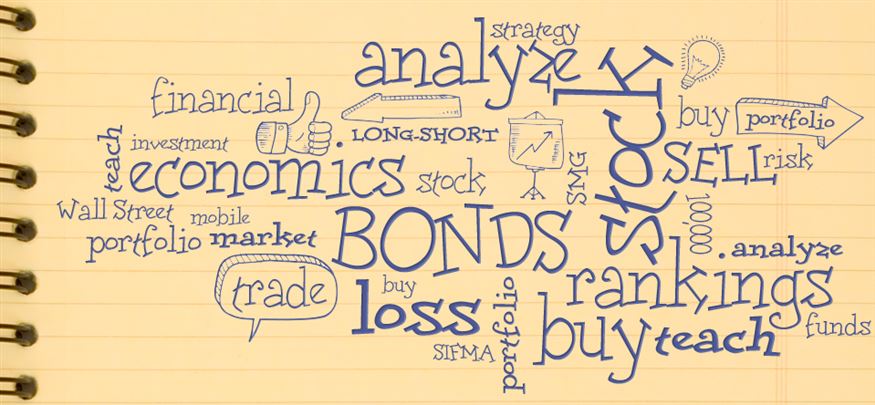 strategy
analyze
financial
stock
buy
portfolio
LONG-SHORT
teach
investment
economics
stock
SMG
SELL
risk
Wall Street
mobile
portfolio
market
BONDS
.analyze
rankings
trade
buy
loss
portfolio
buy
teach
funds
SIFMA